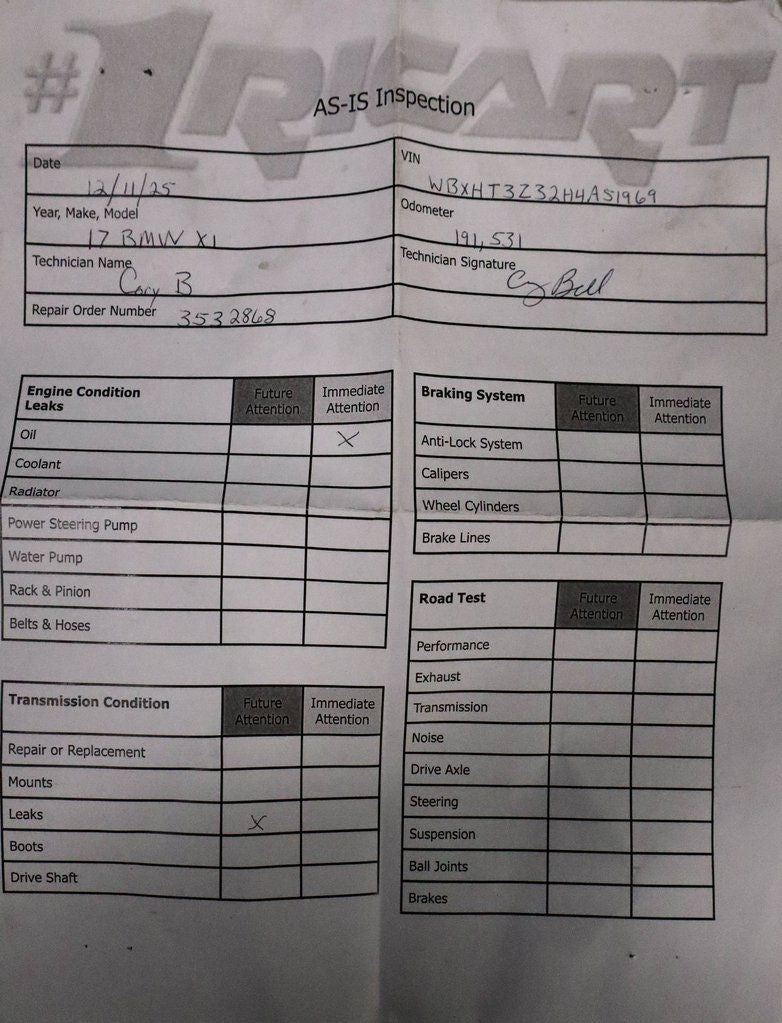 #1 RICART
AS-IS Inspection
Date 12/11/25
VIN WBXHT3Z32H4A51969
Year, Make, Model 17 BMW X1
Odometer 191,531
Technician Name Cory B
Technician Signature Cory Bell
Repair Order Number 3532868
Engine Condition Leaks Future Attention Immediate Attention
Oil X
Coolant
Radiator
Power Steering Pump
Water Pump
Rack & Pinion
Belts & Hoses
Transmission Condition Future Attention Immediate Attention
Repair or Replacement
Mounts
Leaks X
Boots
Drive Shaft
Braking System Future Attention Immediate Attention
Anti-Lock System
Calipers
Wheel Cylinders
Brake Lines
Road Test Future Attention Immediate Attention
Performance
Exhaust
Transmission
Noise
Drive Axle
Steering
Suspension
Ball Joints
Brakes